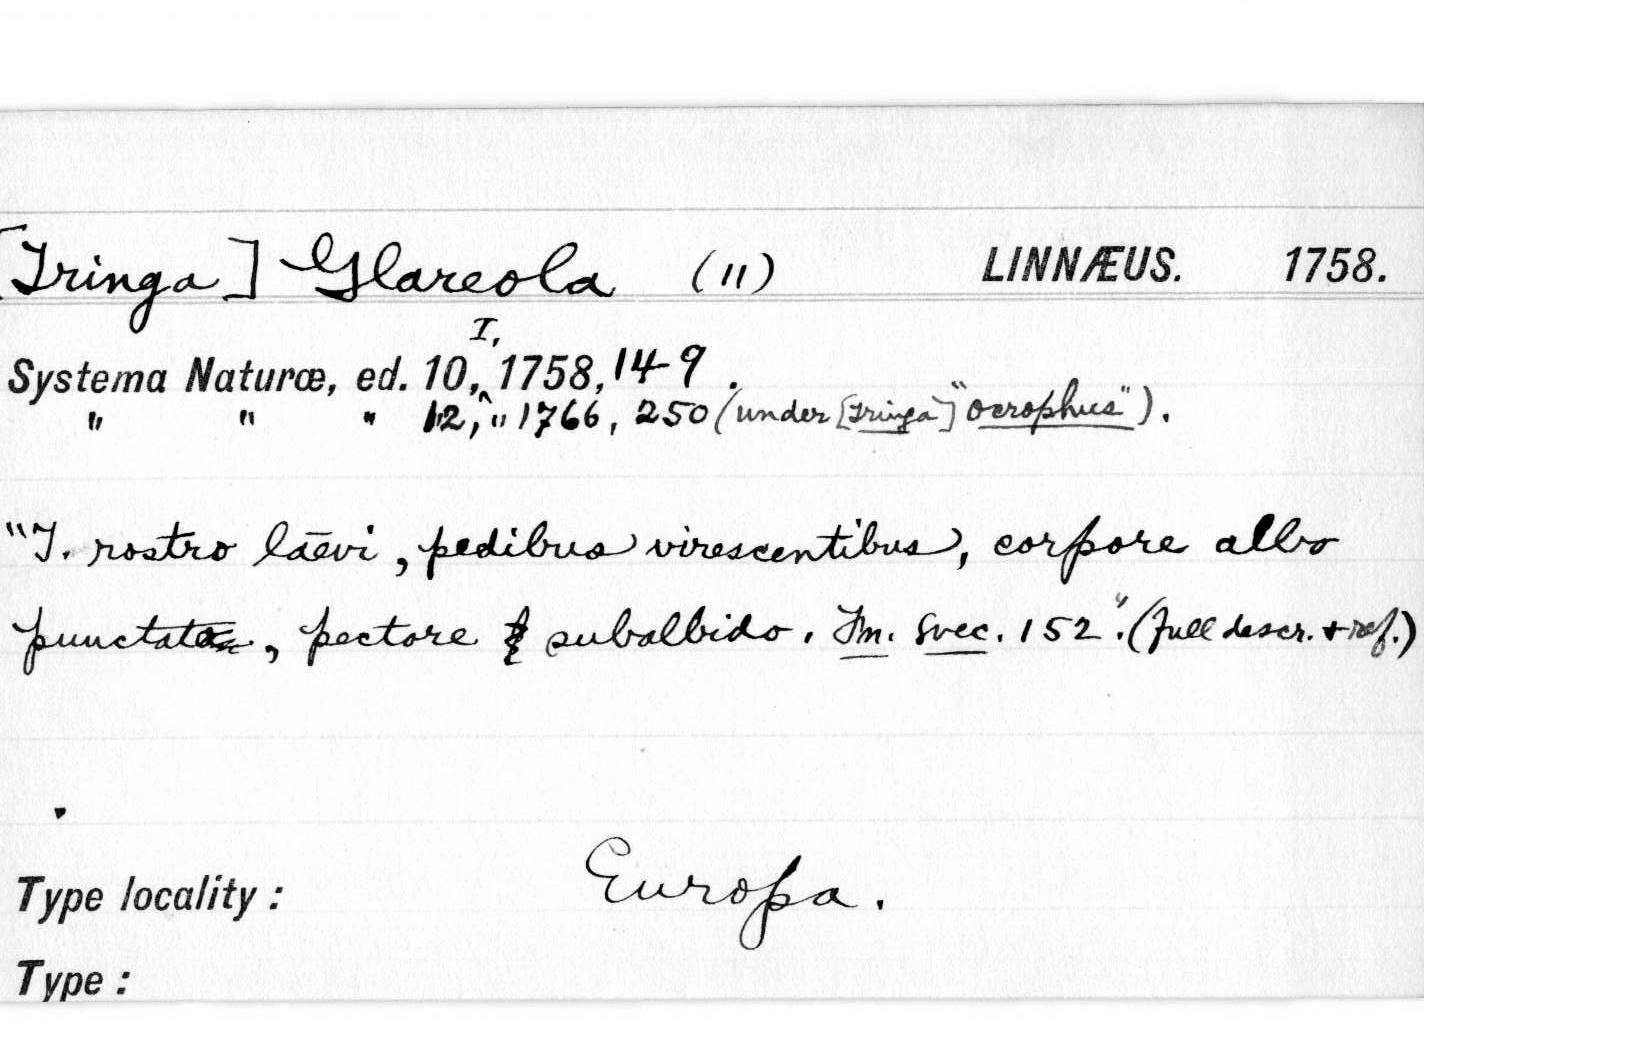 [Tringa] Glareola (11) LINNÆUS. 1758.
I,
Systema Naturæ, ed. 10,^ 1758, 149.
" " " 12, " 1766, 250 (under [Tringa] "ocrophus").
"T. rostro lāevi, pedibus virescentibus, corpore albo
punctato, pectore subalbido. Fn. Svec. 152". (full descr. + ref.)
Type locality: Europa.
Type: